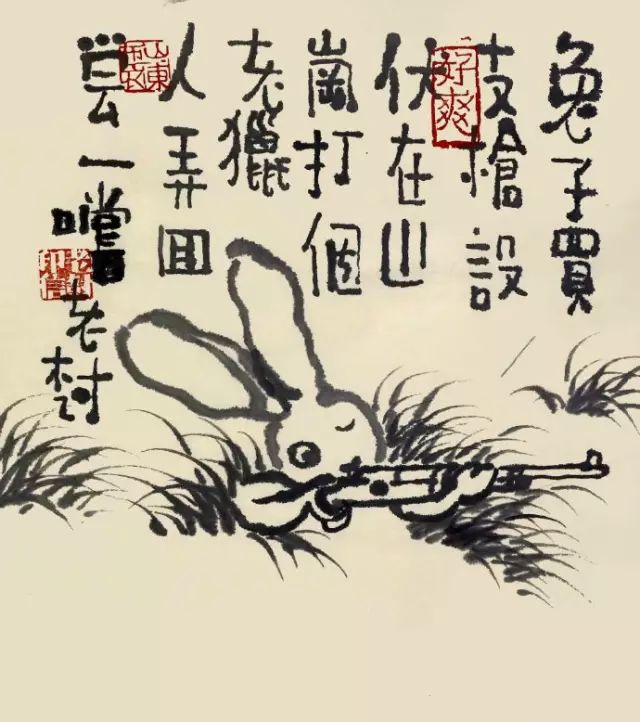 兔子買
支槍設
伏在山
崗打個
老獵
人弄回
尝一嚐
老树
好爽